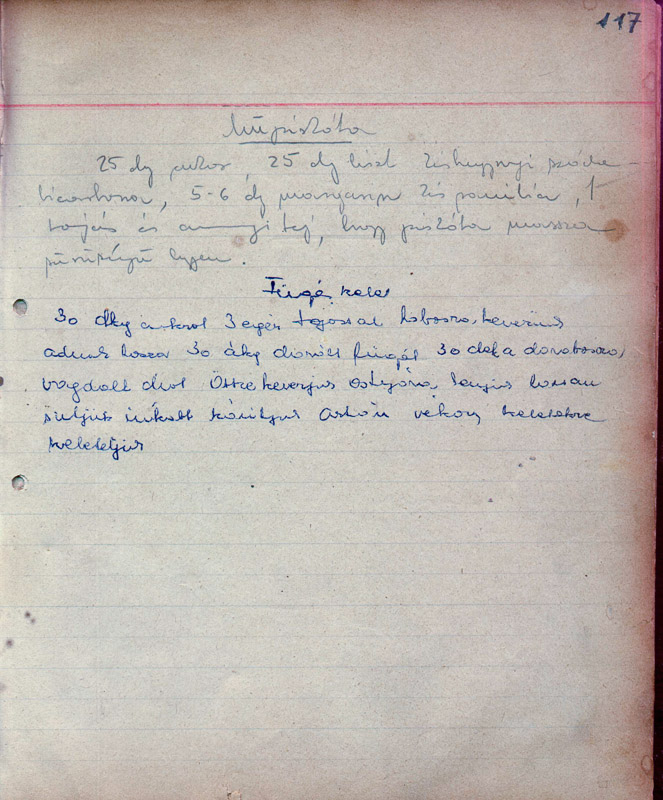 117
Műpiskóta
25 dg cukor, 25 dg liszt késhegynyi szóda-
bicarbona, 5-6 dg margarin kis vanília, 1
tojás és annyi tej, hogy piskóta massza
sűrűségű legyen.
Fügé kelet
30 dkg cukrot 3 egés tojossal habosra, keverünk
adunk hozza 30 dkg diorolt fügét 30 deka daraboszra,
vagdalt diot Össze keverjük ostyára tenyis lassan
sütjük inkább száritjuk aztán vékony szeletekre
szeleteljük